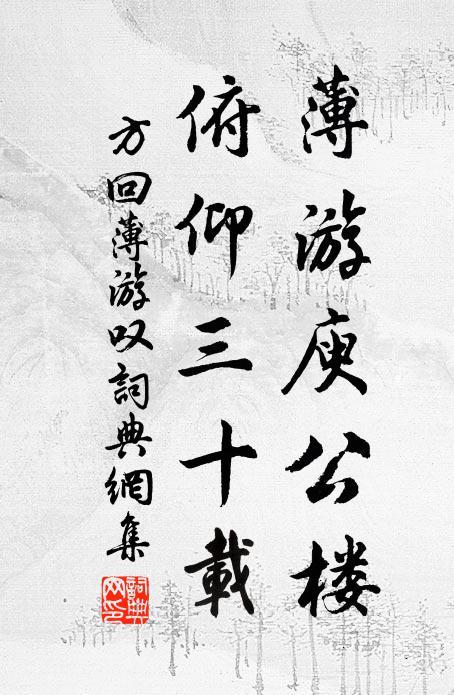 薄游庾公楼
俯仰三十載
方回薄游叹詞典網集
詞典網印